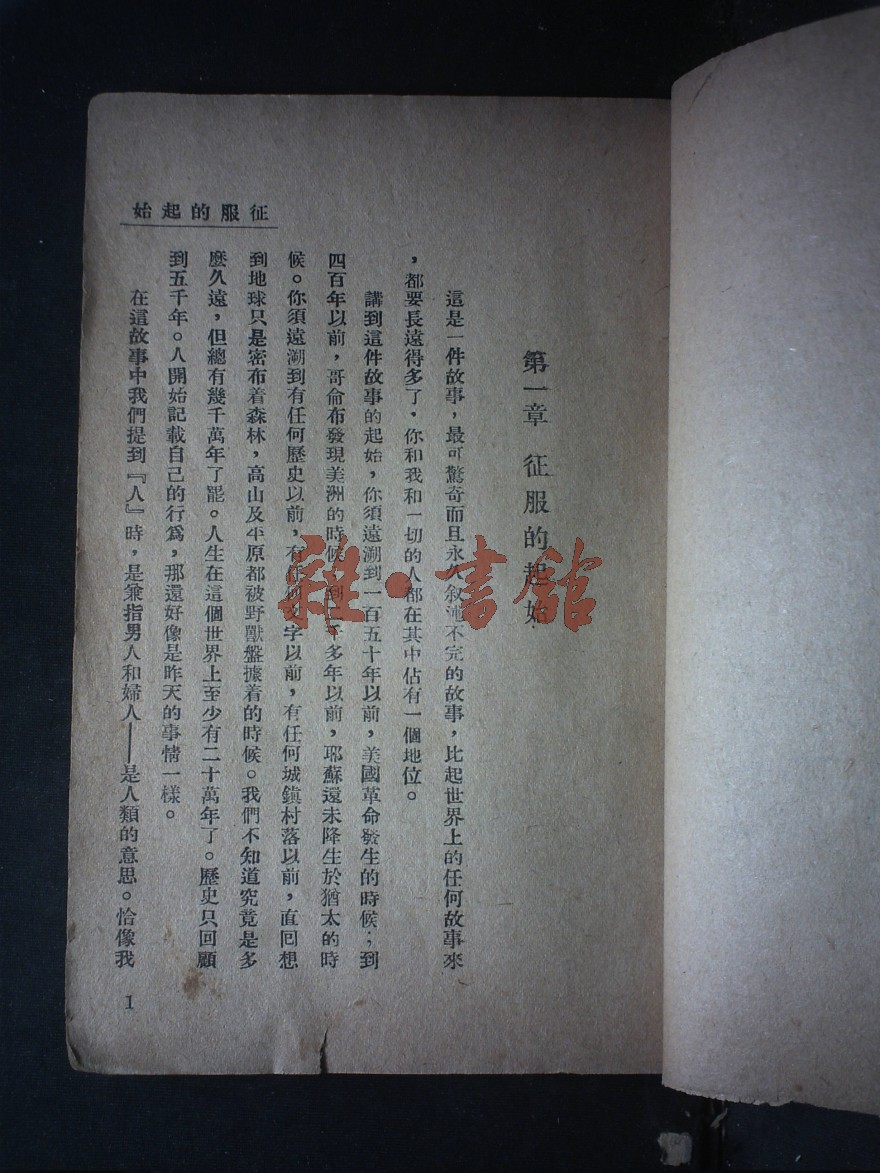 征服的起始
第一章 征服的起始
這是一件故事，最可驚奇而且永久叙述不完的故事，比起世界上的任何故事來
，都要長遠得多了．你和我和一切的人都在其中佔有一個地位。
講到這件故事的起始，你須遠溯到一百五十年以前，美國革命發生的時候；到
四百年以前，哥侖布發現美洲的時候 到 千多年以前，耶蘇還未降生於猶太的時
候。你須遠溯到有任何歷史以前，有任何文字以前，有任何城鎮村落以前，直回想
到地球只是密布着森林，高山及平原都被野獸盤據着的時候。我們不知道究竟是多
麽久遠，但總有幾千萬年了罷。人生在這個世界上至少有二十萬年了。歷史只回顧
到五千年。人開始記載自己的行爲，那還好像是昨天的事情一樣。
在這故事中我們提到『人』時，是兼指男人和婦人——是人類的意思。恰像我
1
雜·書館